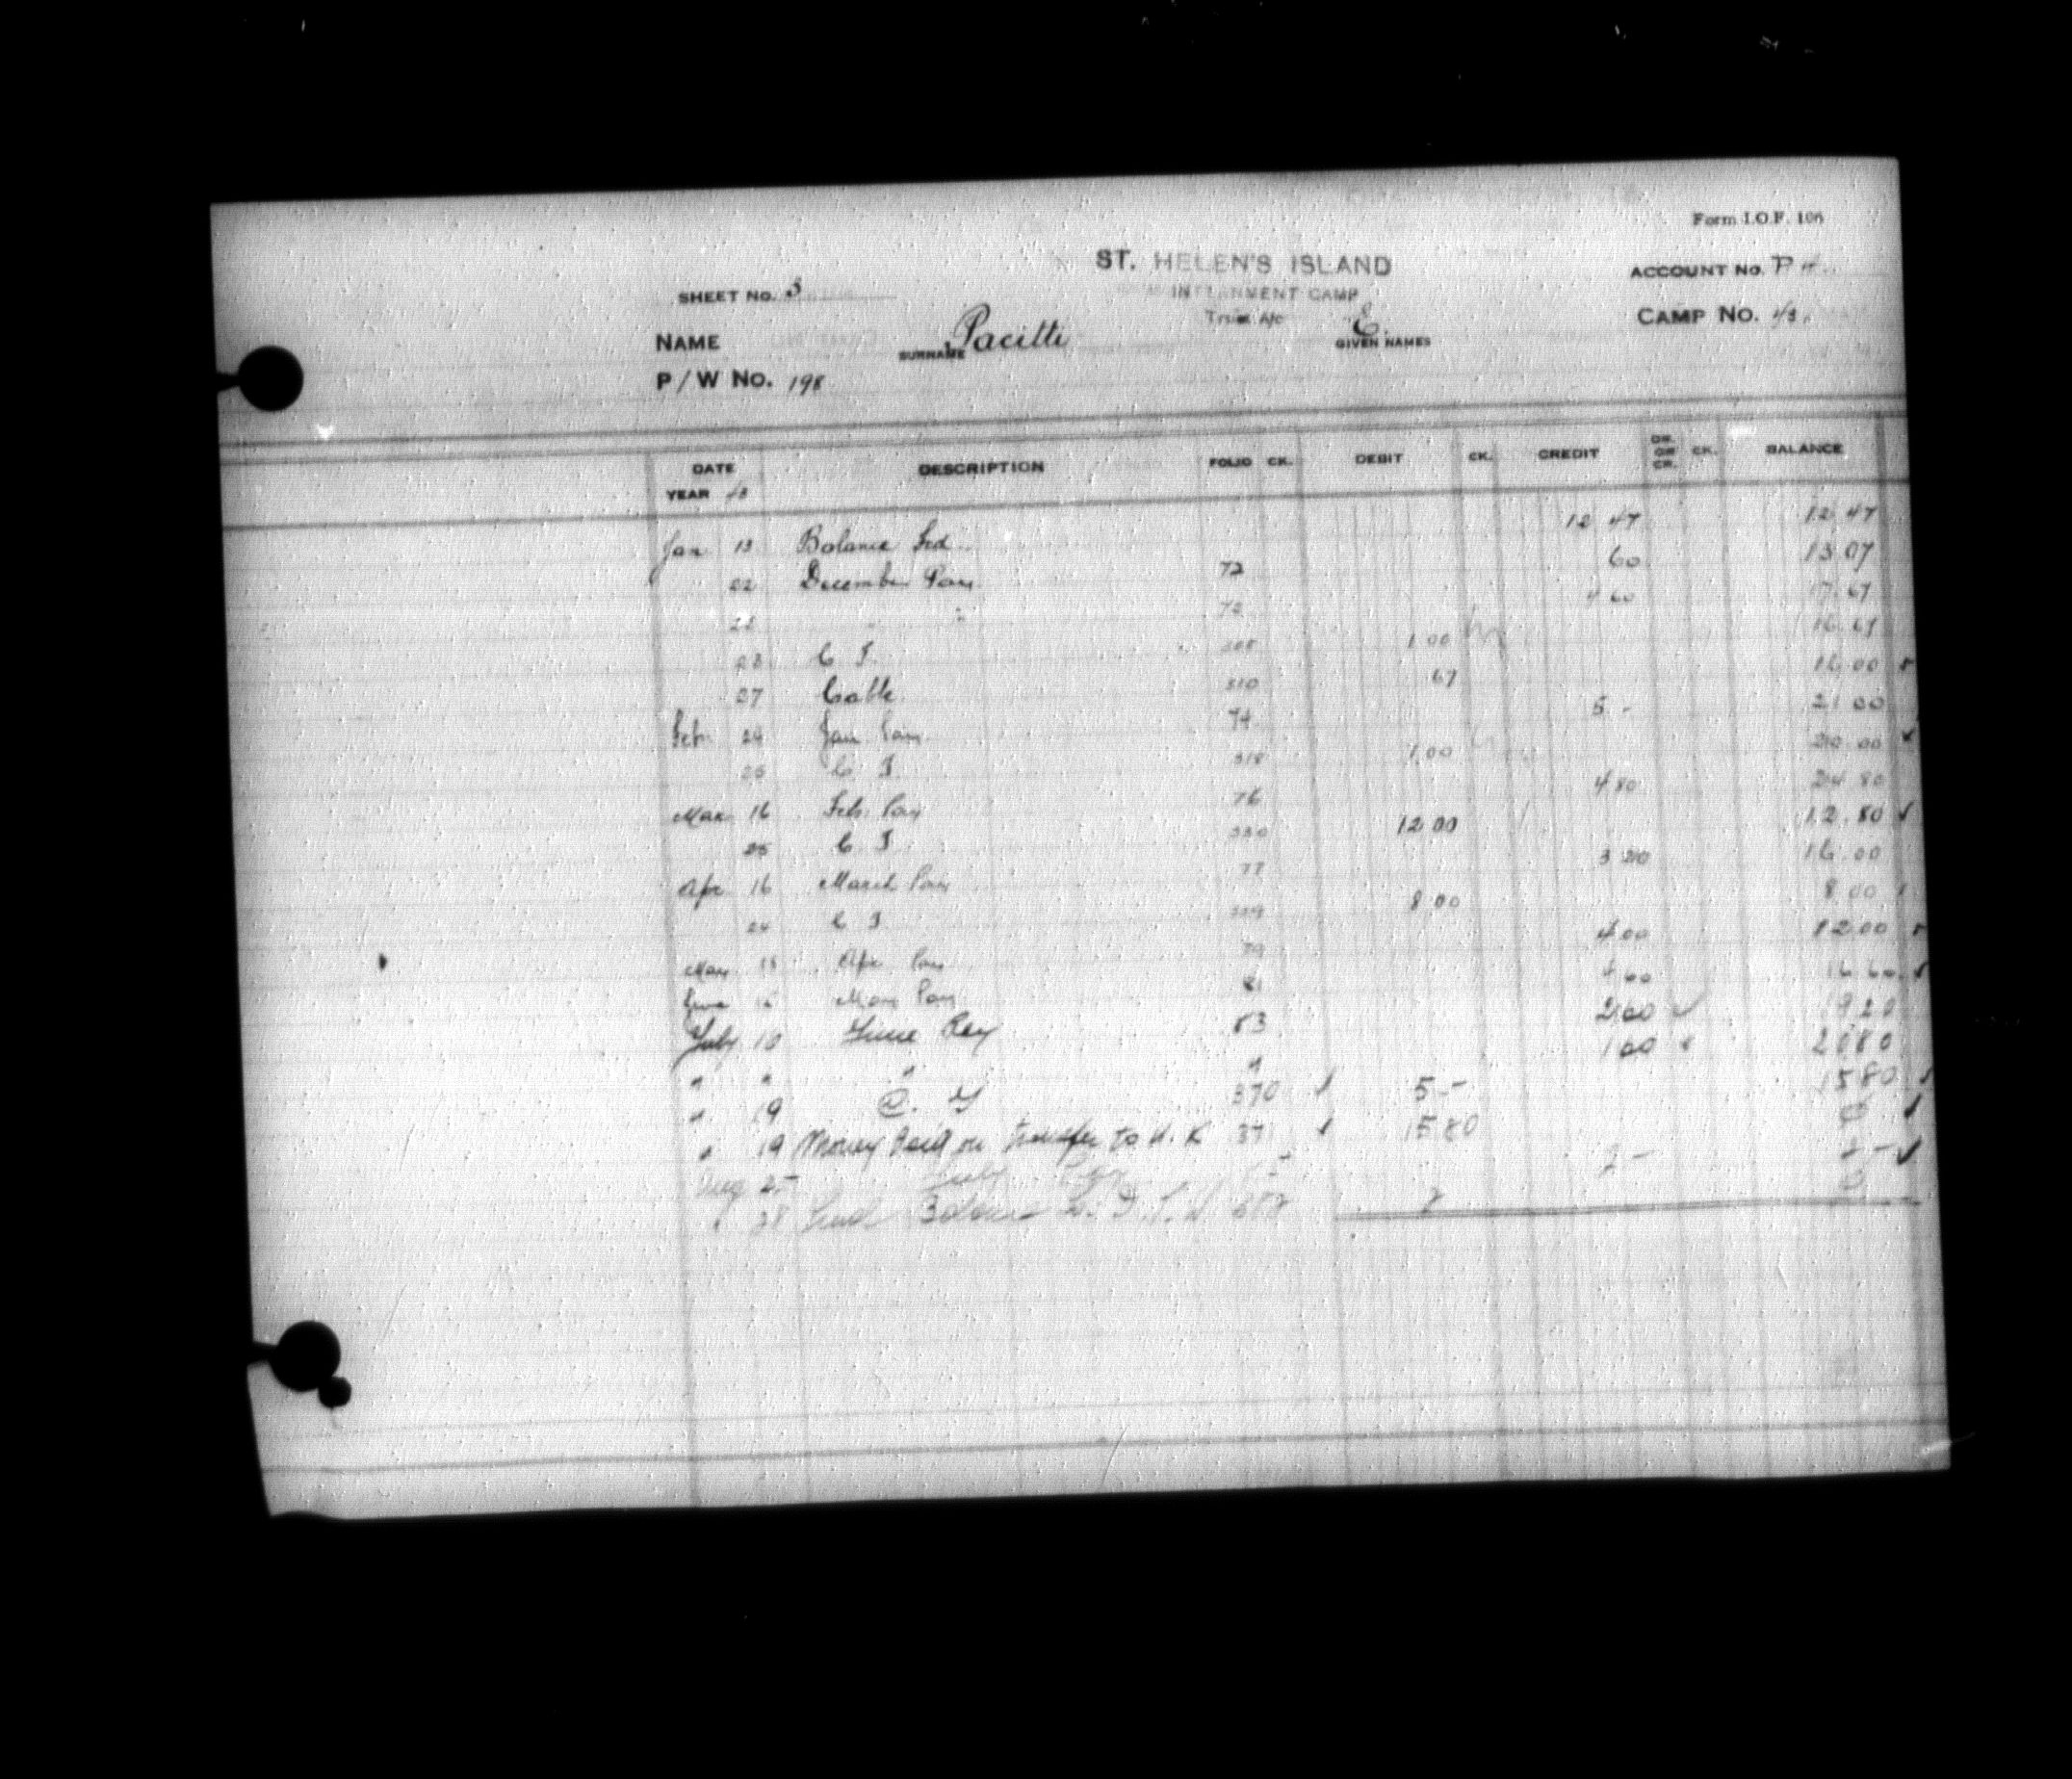 Form I.O.F. 106
ST. HELEN'S ISLAND
INTERNMENT CAMP
Trust A/c
ACCOUNT No. P
SHEET No. 3
CAMP No. 43.
NAME Pacitti E.
SURNAME GIVEN NAMES
P/W No. 198
DATE DESCRIPTION FOLIO CK. DEBIT CK. CREDIT DR. OR CR. CK. BALANCE
YEAR 43
Jan 13 Balance Fed 12 47 12 47
22 December Pay 72 60 13 07
22 " " 72 4 60 17.67
23 C I. 1 00 16.67
27 Cable. 310 67 16.00
Feb. 24 Jan Pay 74 5 - 21 00
25 C I. 318 1.00 20.00
Mar 16 Feb. Pay 76 4 80 24 80
25 C I. 330 12 00 12.80
Apr 16 March Pay 77 3 20 16.00
24 C I. 8 00 8.00
May 18 Apr Pay 79 4.00 12.00
June 15 May Pay 81 4 60 16 60
July 10 June Pay 83 2.60 19 20
" " " " 1 60 20 80
" 19 C. I 370 5 - 15 80
" 19 Money Paid on transfer to U. K 371 15 80 0
Aug 25 July Pay 2 - 2 -
28 Balance 2 0